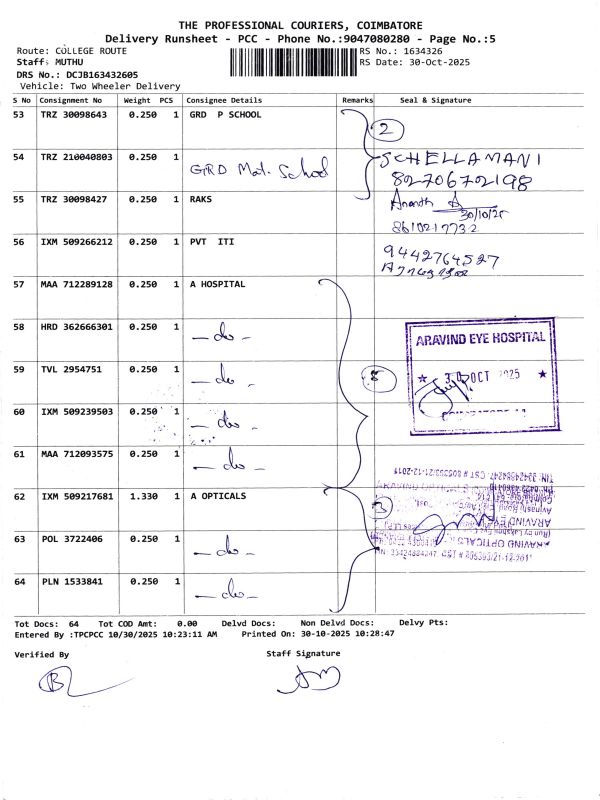 THE PROFESSIONAL COURIERS, COIMBATORE
Delivery Runsheet - PCC - Phone No.:9047080280 - Page No.:5
Route: COLLEGE ROUTE RS No.: 1634326
Staff: MUTHU RS Date: 30-Oct-2025
DRS No.: DCJB163432605
Vehicle: Two Wheeler Delivery
S No Consignment No Weight PCS Consignee Details Remarks Seal & Signature
53 TRZ 30098643 0.250 1 GRD P SCHOOL 2
54 TRZ 210040803 0.250 1 GRD Mat. School SCHELLAMANI
8270672198
55 TRZ 30098427 0.250 1 RAKS Ananth
30/10/25
8610217732
56 IXM 509266212 0.250 1 PVT ITI 9442764527
57 MAA 712289128 0.250 1 A HOSPITAL
58 HRD 362666301 0.250 1 - do - ARAVIND EYE HOSPITAL
59 TVL 2954751 0.250 1 - do - 5 ★ 30 OCT 2025 ★
60 IXM 509239503 0.250 1 - do -
61 MAA 712093575 0.250 1 - do -
62 IXM 509217681 1.330 1 A OPTICALS 3
ARAVIND EYE
ARAVIND OPTICALS
63 POL 3722406 0.250 1 - do -
64 PLN 1533841 0.250 1 - do -
Tot Docs: 64 Tot COD Amt: 0.00 Delvd Docs: Non Delvd Docs: Delvy Pts:
Entered By :TPCPCC 10/30/2025 10:23:11 AM Printed On: 30-10-2025 10:28:47
Verified By Staff Signature